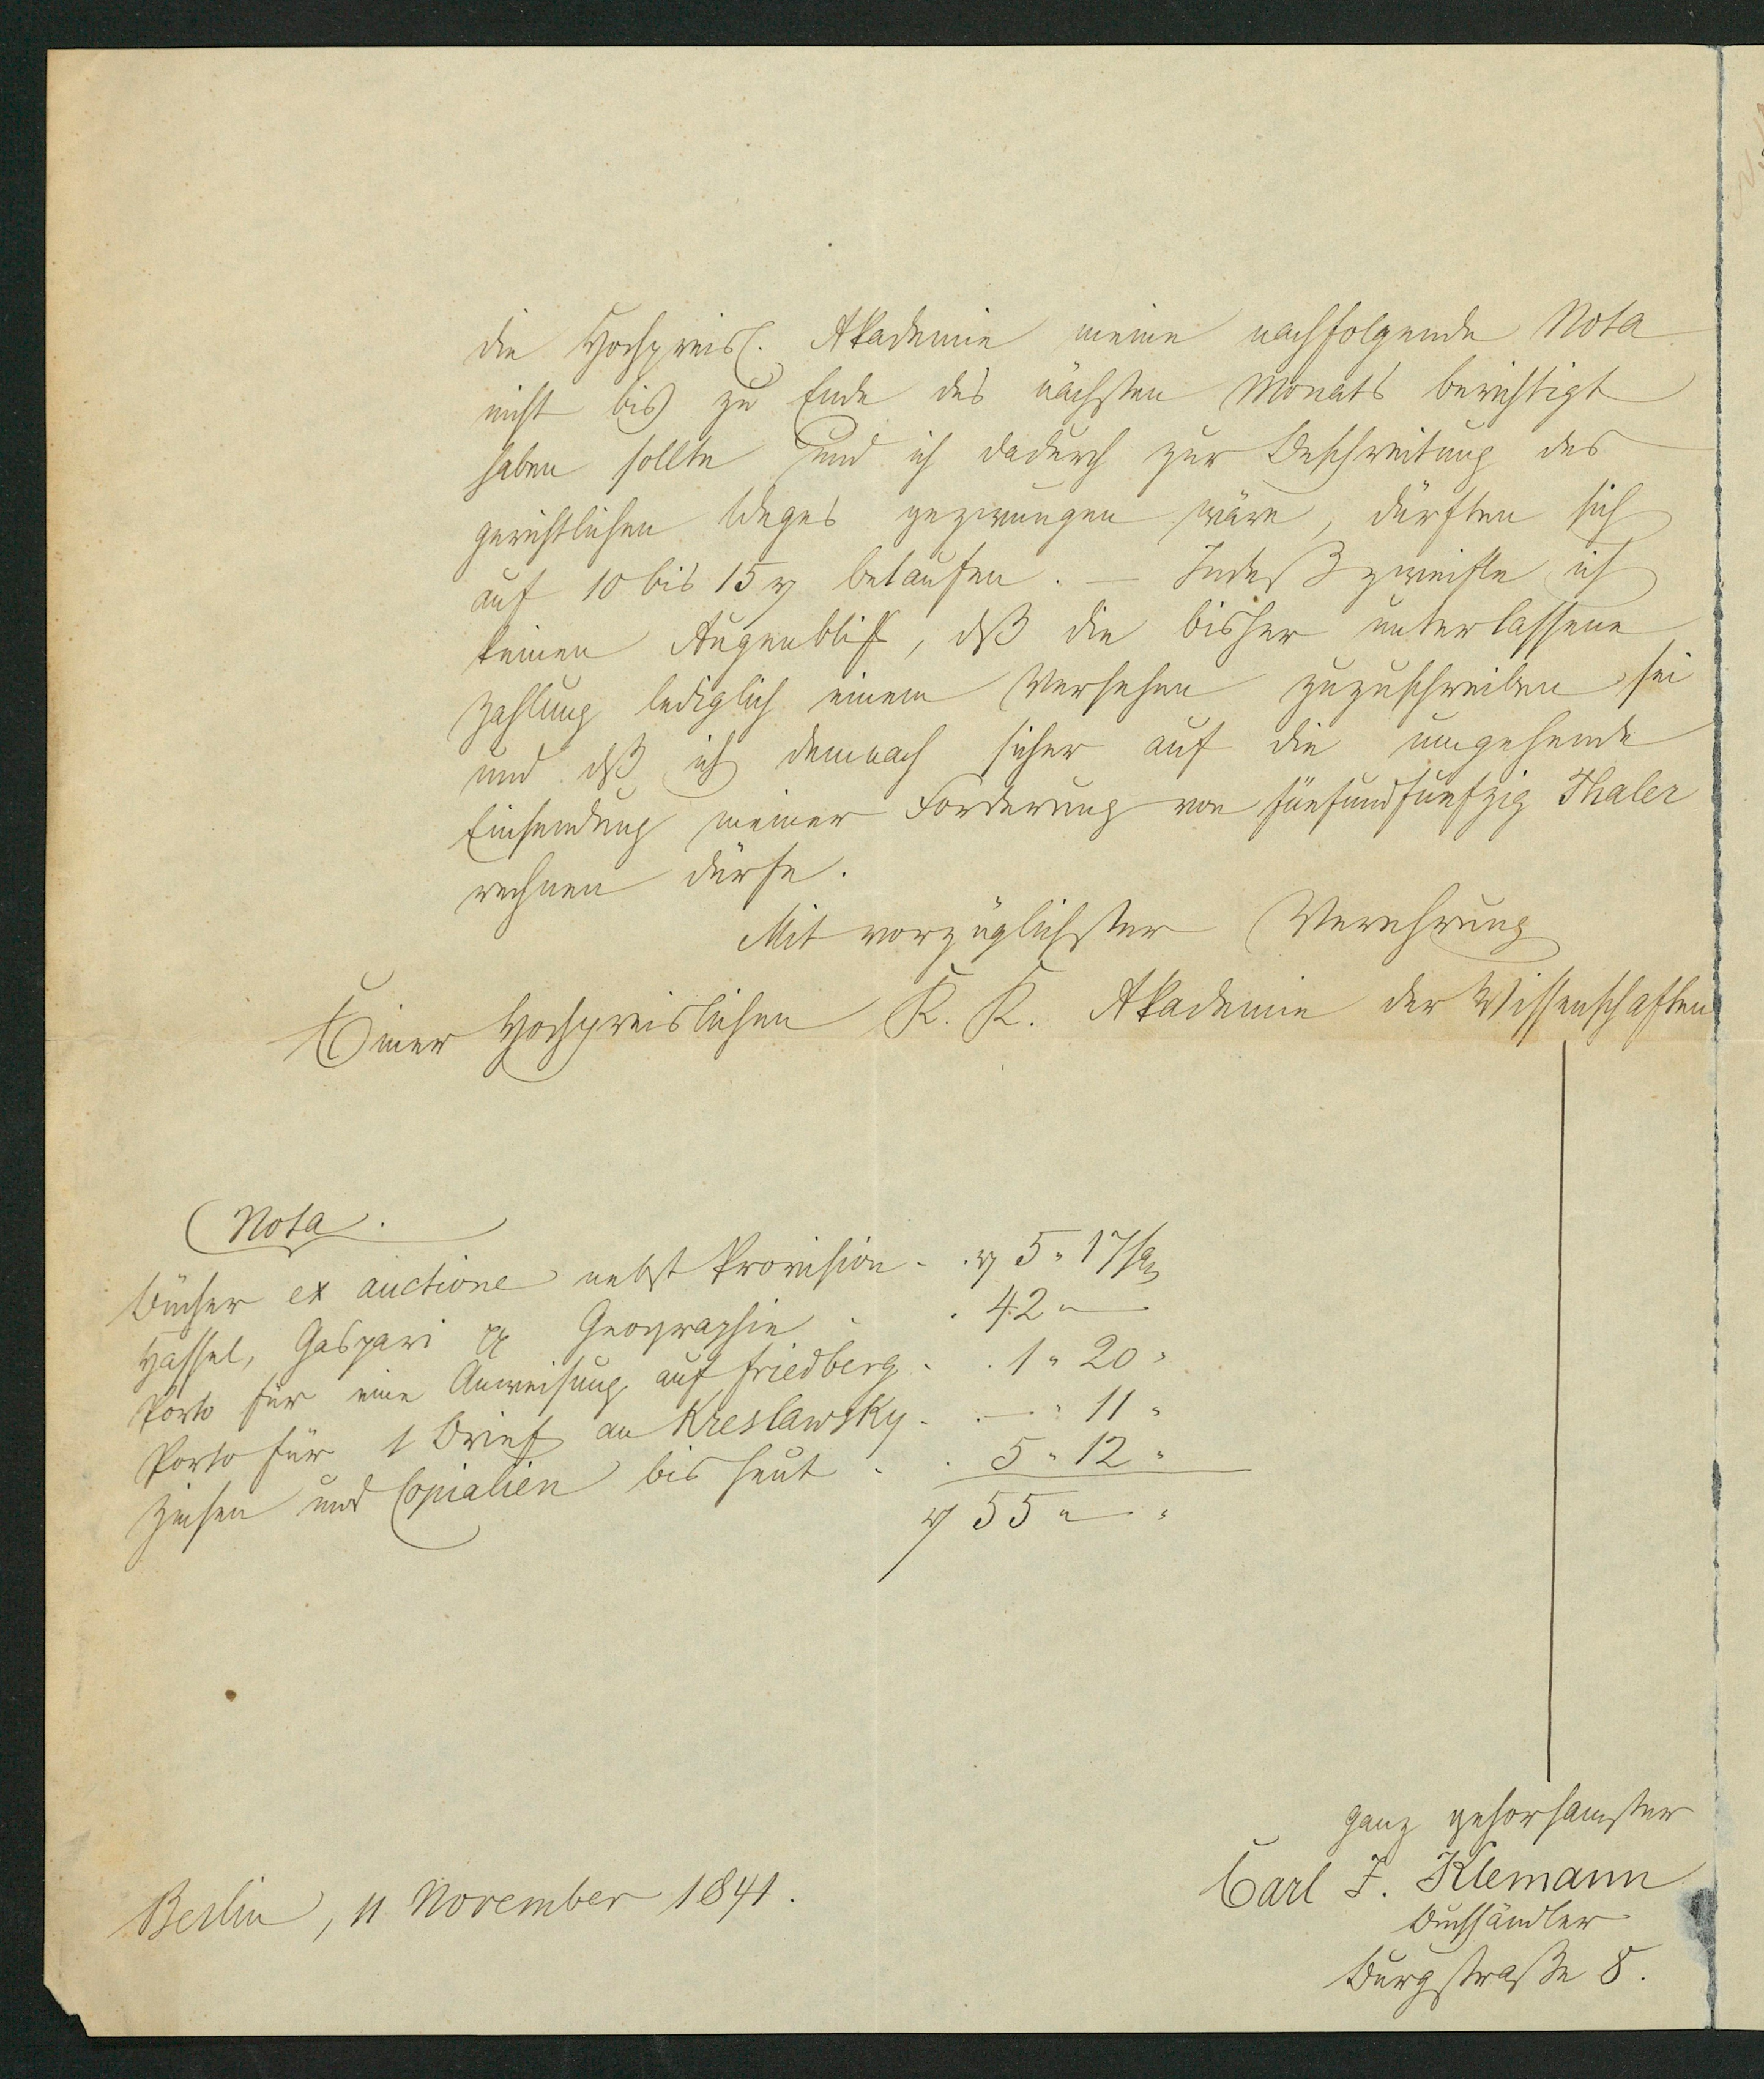 die Hochpreisl. Akademie meine nachfolgende Nota
nicht bis zu Ende des nächsten Monats berichtigt
haben sollte und ich dadurch zur Beschreitung des
gerichtlichen Weges gezwungen wäre, dürften sich
auf 10 bis 15 rℓ belaufen. — Indeß zweifle ich
keinen Augenblick, dß die bisher unterlassene
Zahlung lediglich einem Versehen zuzuschreiben sei
und dß ich demnach sicher auf die umgehende
Einsendung meiner Forderung von fünfundfunfzig Thaler
rechnen dürfe.
Mit vorzüglichster Verehrung
Einer Hochpreislichen K. K. Akademie der Wissenschaften
Nota.
Bücher ex auctione nebst Provision - . rℓ 5 " 17 sg
Hassel, Gaspari Geographie - . 42 " —
Porto für eine Anweisung auf Friedberg - . 1 " 20 "
Porto für 1 Brief an Kreslawsky - . — " 11 "
Zinsen und Copialien bis heut - . 5 " 12 "
rℓ 55 " — "
ganz gehorsamster
Carl J. Klemann
Buchhändler
Burgstraße 8.
Berlin, 11 November 1841.